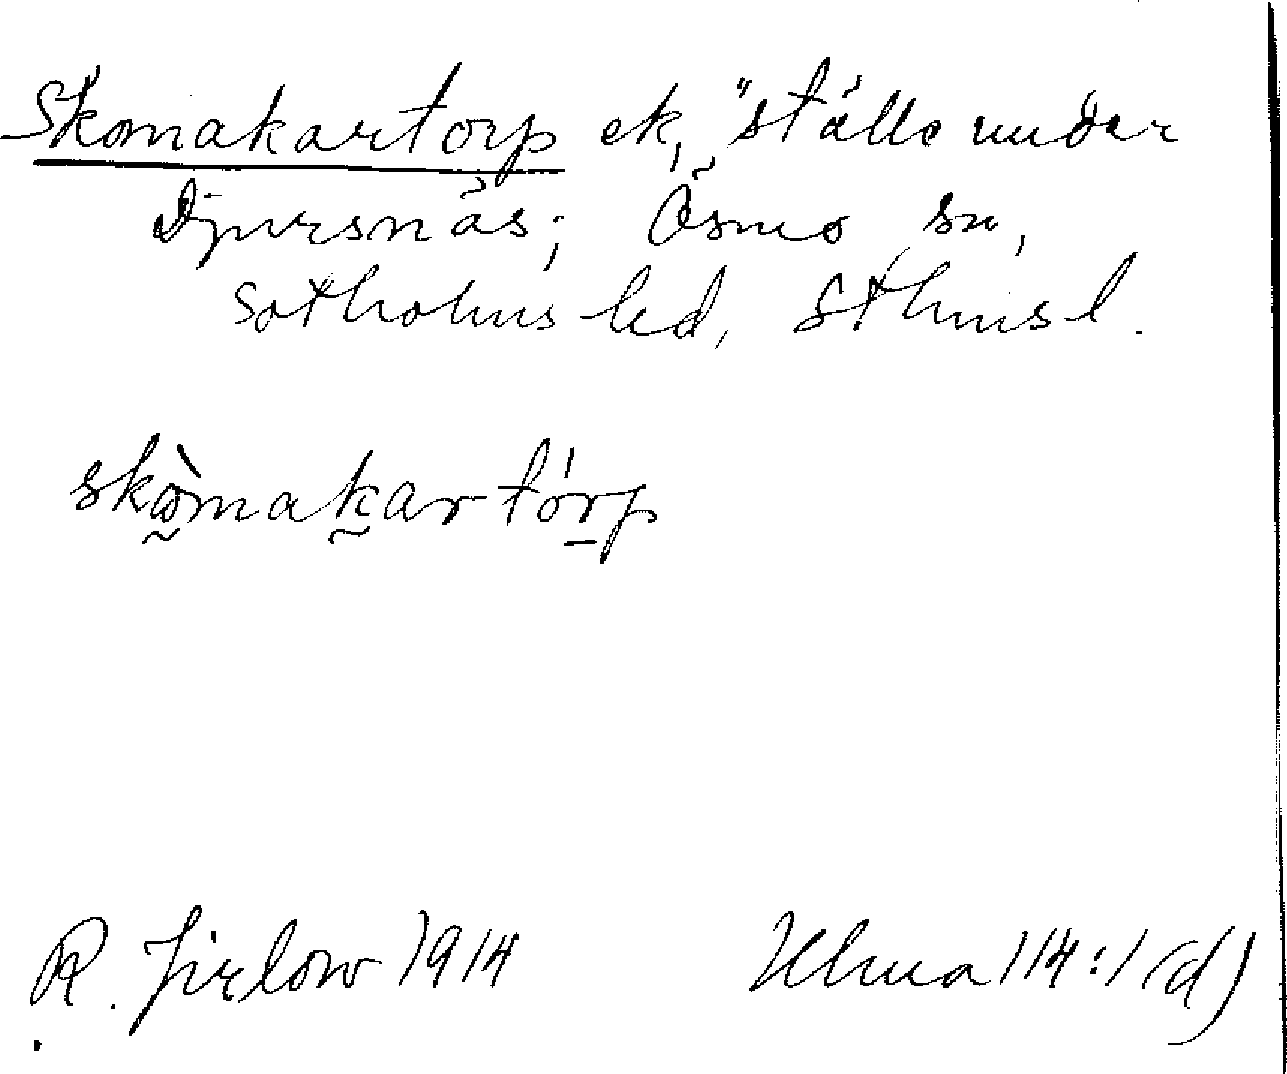 Skomakartorp ek, "ställe under
Djursnäs; Ösmo sn,
Sotholms hd, Sthms l.
skòmakartórp
R. Jirlow 1914 Ulma 114:1 (d)